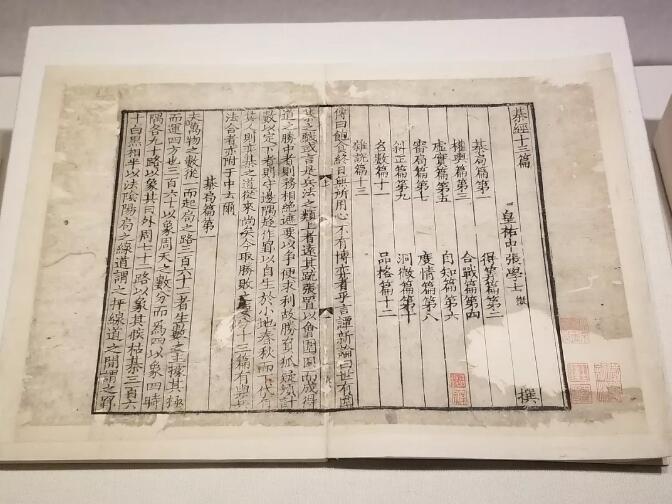 棊經十三篇
皇祐中張學士 撰
棊局篇第一 得筭篇第二
權輿篇第三 合戰篇第四
虛實篇第五 自知篇第六
審局篇第七 度情篇第八
斜正篇第九 洞微篇第十
名數篇十一 品格篇十二
雜說篇十三
傳曰飽食終日無所用心不有博弈者乎言譚新論曰世有圍
棊之戲或言是兵法之類上者遠其疏張置以會圍因而成得
道之勝中者則務相絕遮要以爭便求利故勝負狐疑須計
數以定下者則守邊隅趍作罫以自生於小地春秋而下代有
其人則弈棊之道從來尚矣今取勝敗 十三篇有與兵
法合者亦附于中云爾
棊局篇第一
夫萬物之數從一而起局之路三百六十一一者生數之主據其極
而運四方也三百六十以象周天之數分而為四以象四時
隅各九十路以象其日外周七十二路以象其候枯棊三百六
十白黑相半以法陰陽局之線道謂之枰線道之間謂之罫